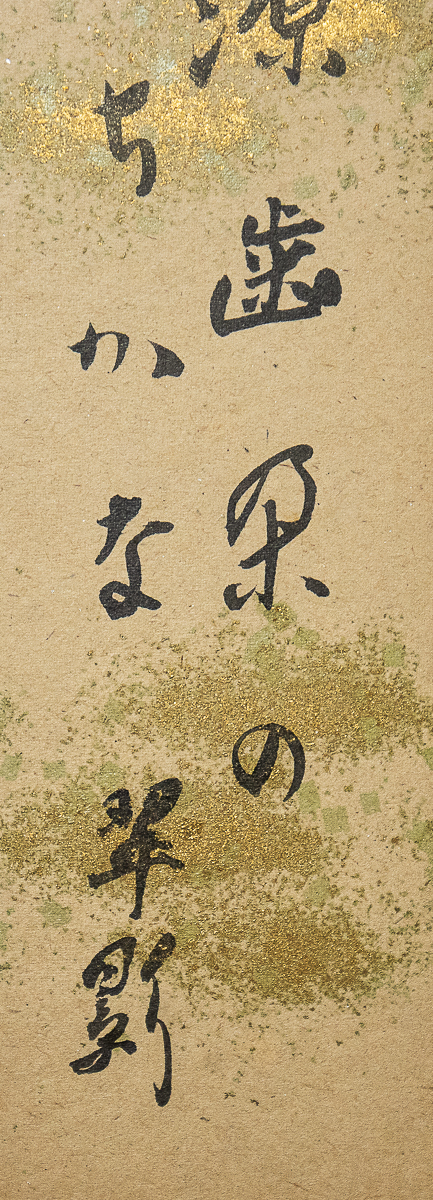 歯朶の
ちかな 翠影